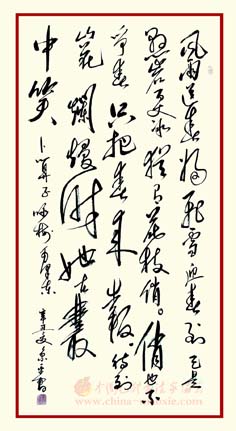 风雨送春归飞雪迎春到已是
悬崖百丈冰犹有花枝俏。俏也不
争春只把春来报。待到
山花烂熳时她在丛
中笑
卜算子咏梅毛泽东
www.china-shufajie.com